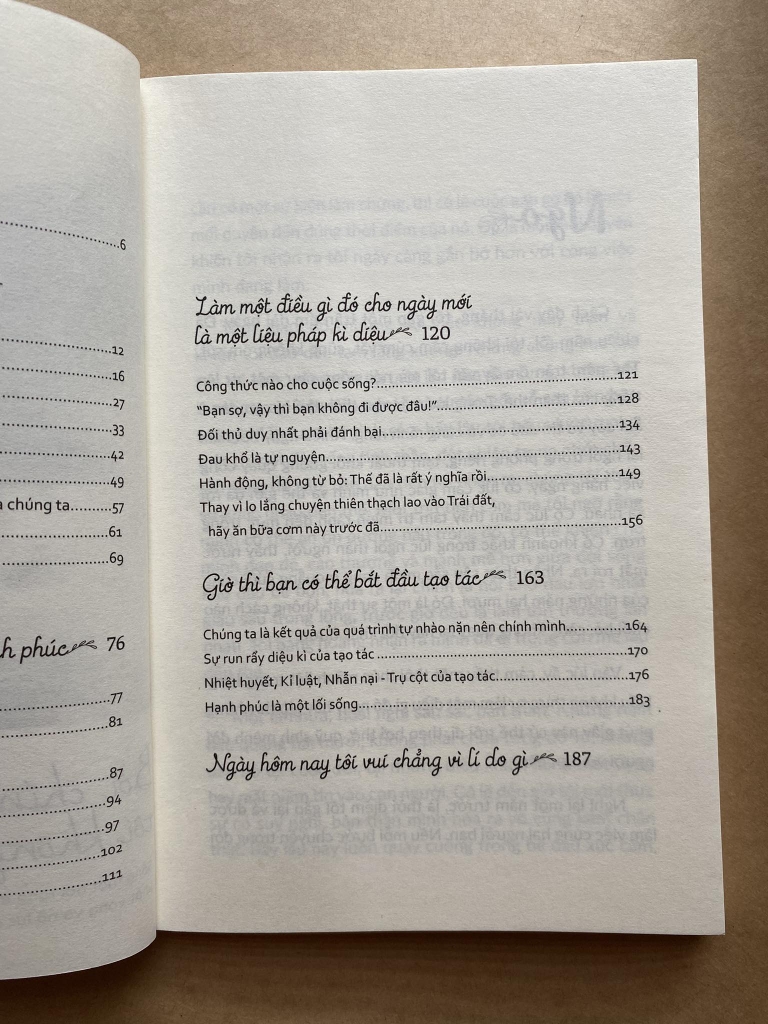 .....6
.....12
.....16
.....27
.....33
.....42
.....49
chúng ta.........57
.....61
.....69
phúc 76
.....77
.....81
.....87
.....94
.....97
.....102
.....111
Làm một điều gì đó cho ngày mới
là một liệu pháp kì diệu 120
Công thức nào cho cuộc sống?.....121
“Bạn sợ, vậy thì bạn không đi được đâu!”.....128
Đối thủ duy nhất phải đánh bại.....134
Đau khổ là tự nguyện.....143
Hành động, không từ bỏ: Thế đã là rất ý nghĩa rồi.....149
Thay vì lo lắng chuyện thiên thạch lao vào Trái đất,
hãy ăn bữa cơm này trước đã.....156
Giờ thì bạn có thể bắt đầu tạo tác 163
Chúng ta là kết quả của quá trình tự nhào nặn nên chính mình.....164
Sự run rẩy diệu kì của tạo tác .....170
Nhiệt huyết, Kỉ luật, Nhẫn nại - Trụ cột của tạo tác.....176
Hạnh phúc là một lối sống.....183
Ngày hôm nay tôi vui chẳng vì lí do gì 187